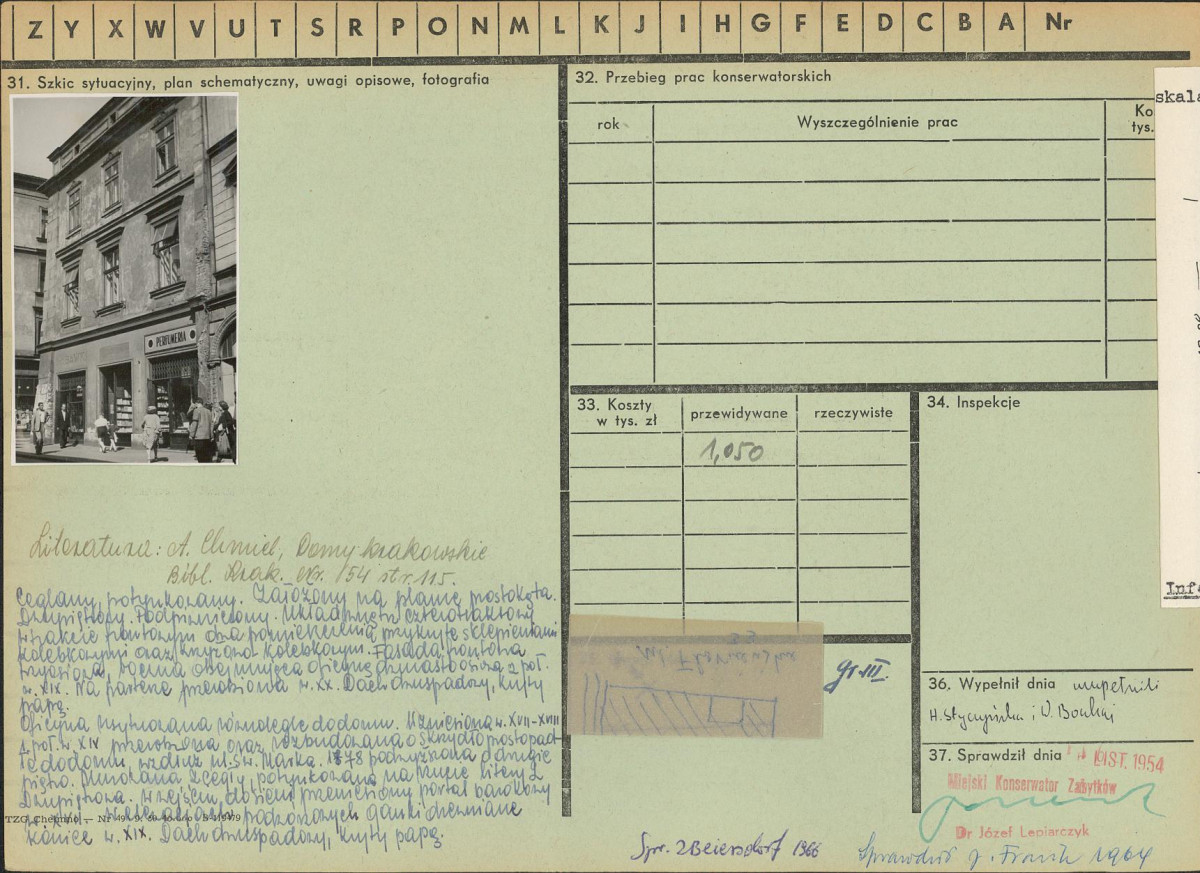 Z Y X W V U T S R P O N M L K J I H G F E D C B A Nr
31. Szkic sytuacyjny, plan schematyczny, uwagi opisowe, fotografia
PERFUMERIA
Literatura: A. Chmiel, Domy krakowskie
Bibl. Krak. Nr. 54 str. 115.
Ceglany, potynkowany. Założony na planie prostokąta.
Dwupiętrowy. Podpiwniczony. Układ wnętrz czterotraktowy
w trakcie frontowym dwa pomieszczenia przykryte sklepieniami
kolebkowymi oraz krzyżowo kolebkowym. Fasada frontowa
trzyosiowa, boczna
w. XIX. Na parterze przerobiona w. XX. Dach dwuspadowy, kryty
papą.
Oficyna murowana równolegle do domu. Wzniesiona w. XVII-XVIII
poł. w. XIX przerobiona oraz rozbudowana o skrzydło prostopad-
łe do domu, wzdłuż ul. św. Marka. 1878 podwyższona o drugie
piętro. Murowana z cegły, potynkowana na rzucie litery L
Dwupiętrowa. W wejściu do sieni przeniesiony portal barokowy
ganki drewniane
TZG Chełmno — Nr
koniec w. XIX. Dach dwuspadowy, kryty papą.
32. Przebieg prac konserwatorskich
rok
Wyszczególnienie prac
Ko
tys.
skala
33. Koszty
w tys. zł
przewidywane
rzeczywiste
1,050
34. Inspekcje
Inf
ul. Floriańska
gr. III.
36. Wypełnił dnia wypełnili
H. Styczyńska i
37. Sprawdził dnia LIST. 1954
Miejski Konserwator Zabytków
Dr Józef Lepiarczyk
Spr. Z Beiersdorf 1966
Sprawdził J. Frazik 1964